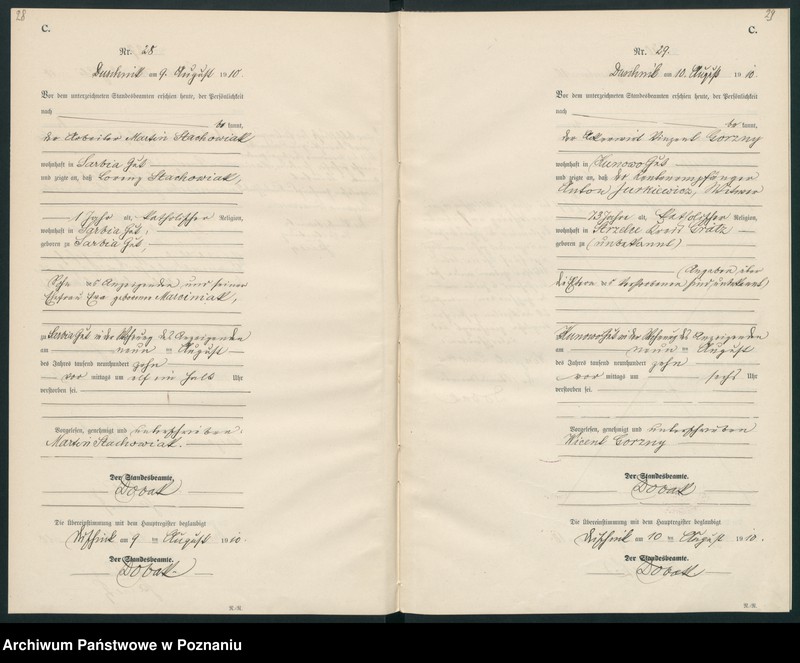 28
C.
Nr. 28.
Duschnik am 9. August 1910.
Vor dem unterzeichneten Standesbeamten erschien heute, der Persönlichkeit
nach
be kannt,
der Arbeiter Martin Stachowiak
wohnhaft in Sarbia Gut
und zeigte an, daß Lorenz Stachowiak,
1 Jahr alt, katholischer Religion,
wohnhaft in Sarbia Gut,
geboren zu Sarbia Gut,
Sohn des Anzeigenden und seiner
Ehefrau Eva geborene Marciniak,
zu Sarbia Gut in der Wohnung des Anzeigenden
am neun ten August
des Jahres tausend neunhundert zehn
vor mittags um elf ein halb Uhr
verstorben sei.
Vorgelesen, genehmigt und unterschrieben.
Martin Stachowiak.
Der Standesbeamte.
Die Übereinstimmung mit dem Hauptregister beglaubigt
Duschnik am 9 ten August 1910.
Der Standesbeamte.
R.-R.
29
C.
Nr. 29.
Duschnik am 10. August 1910.
Vor dem unterzeichneten Standesbeamten erschien heute, der Persönlichkeit
nach
be kannt,
der Ackerwirt Vinzent Gorzny
wohnhaft in Hunowo Gut
und zeigte an, daß der Rentenempfänger
Anton Jurkiewicz, Witwer
73 Jahre alt, katholischer Religion,
wohnhaft in Kreis Grätz
geboren zu (unbekannt)
(Angaben über
die Eltern des Verstorbenen sind unbekannt)
Hunowo Gut in der Wohnung des Anzeigenden
am neun ten August
des Jahres tausend neunhundert zehn
vor mittags um sechs Uhr
verstorben sei.
Vorgelesen, genehmigt und unterschrieben
Wicent Gorzny
Der Standesbeamte.
Die Übereinstimmung mit dem Hauptregister beglaubigt
Duschnik am 10 ten August 1910.
Der Standesbeamte.
R.-R.
Archiwum Państwowe w Poznaniu